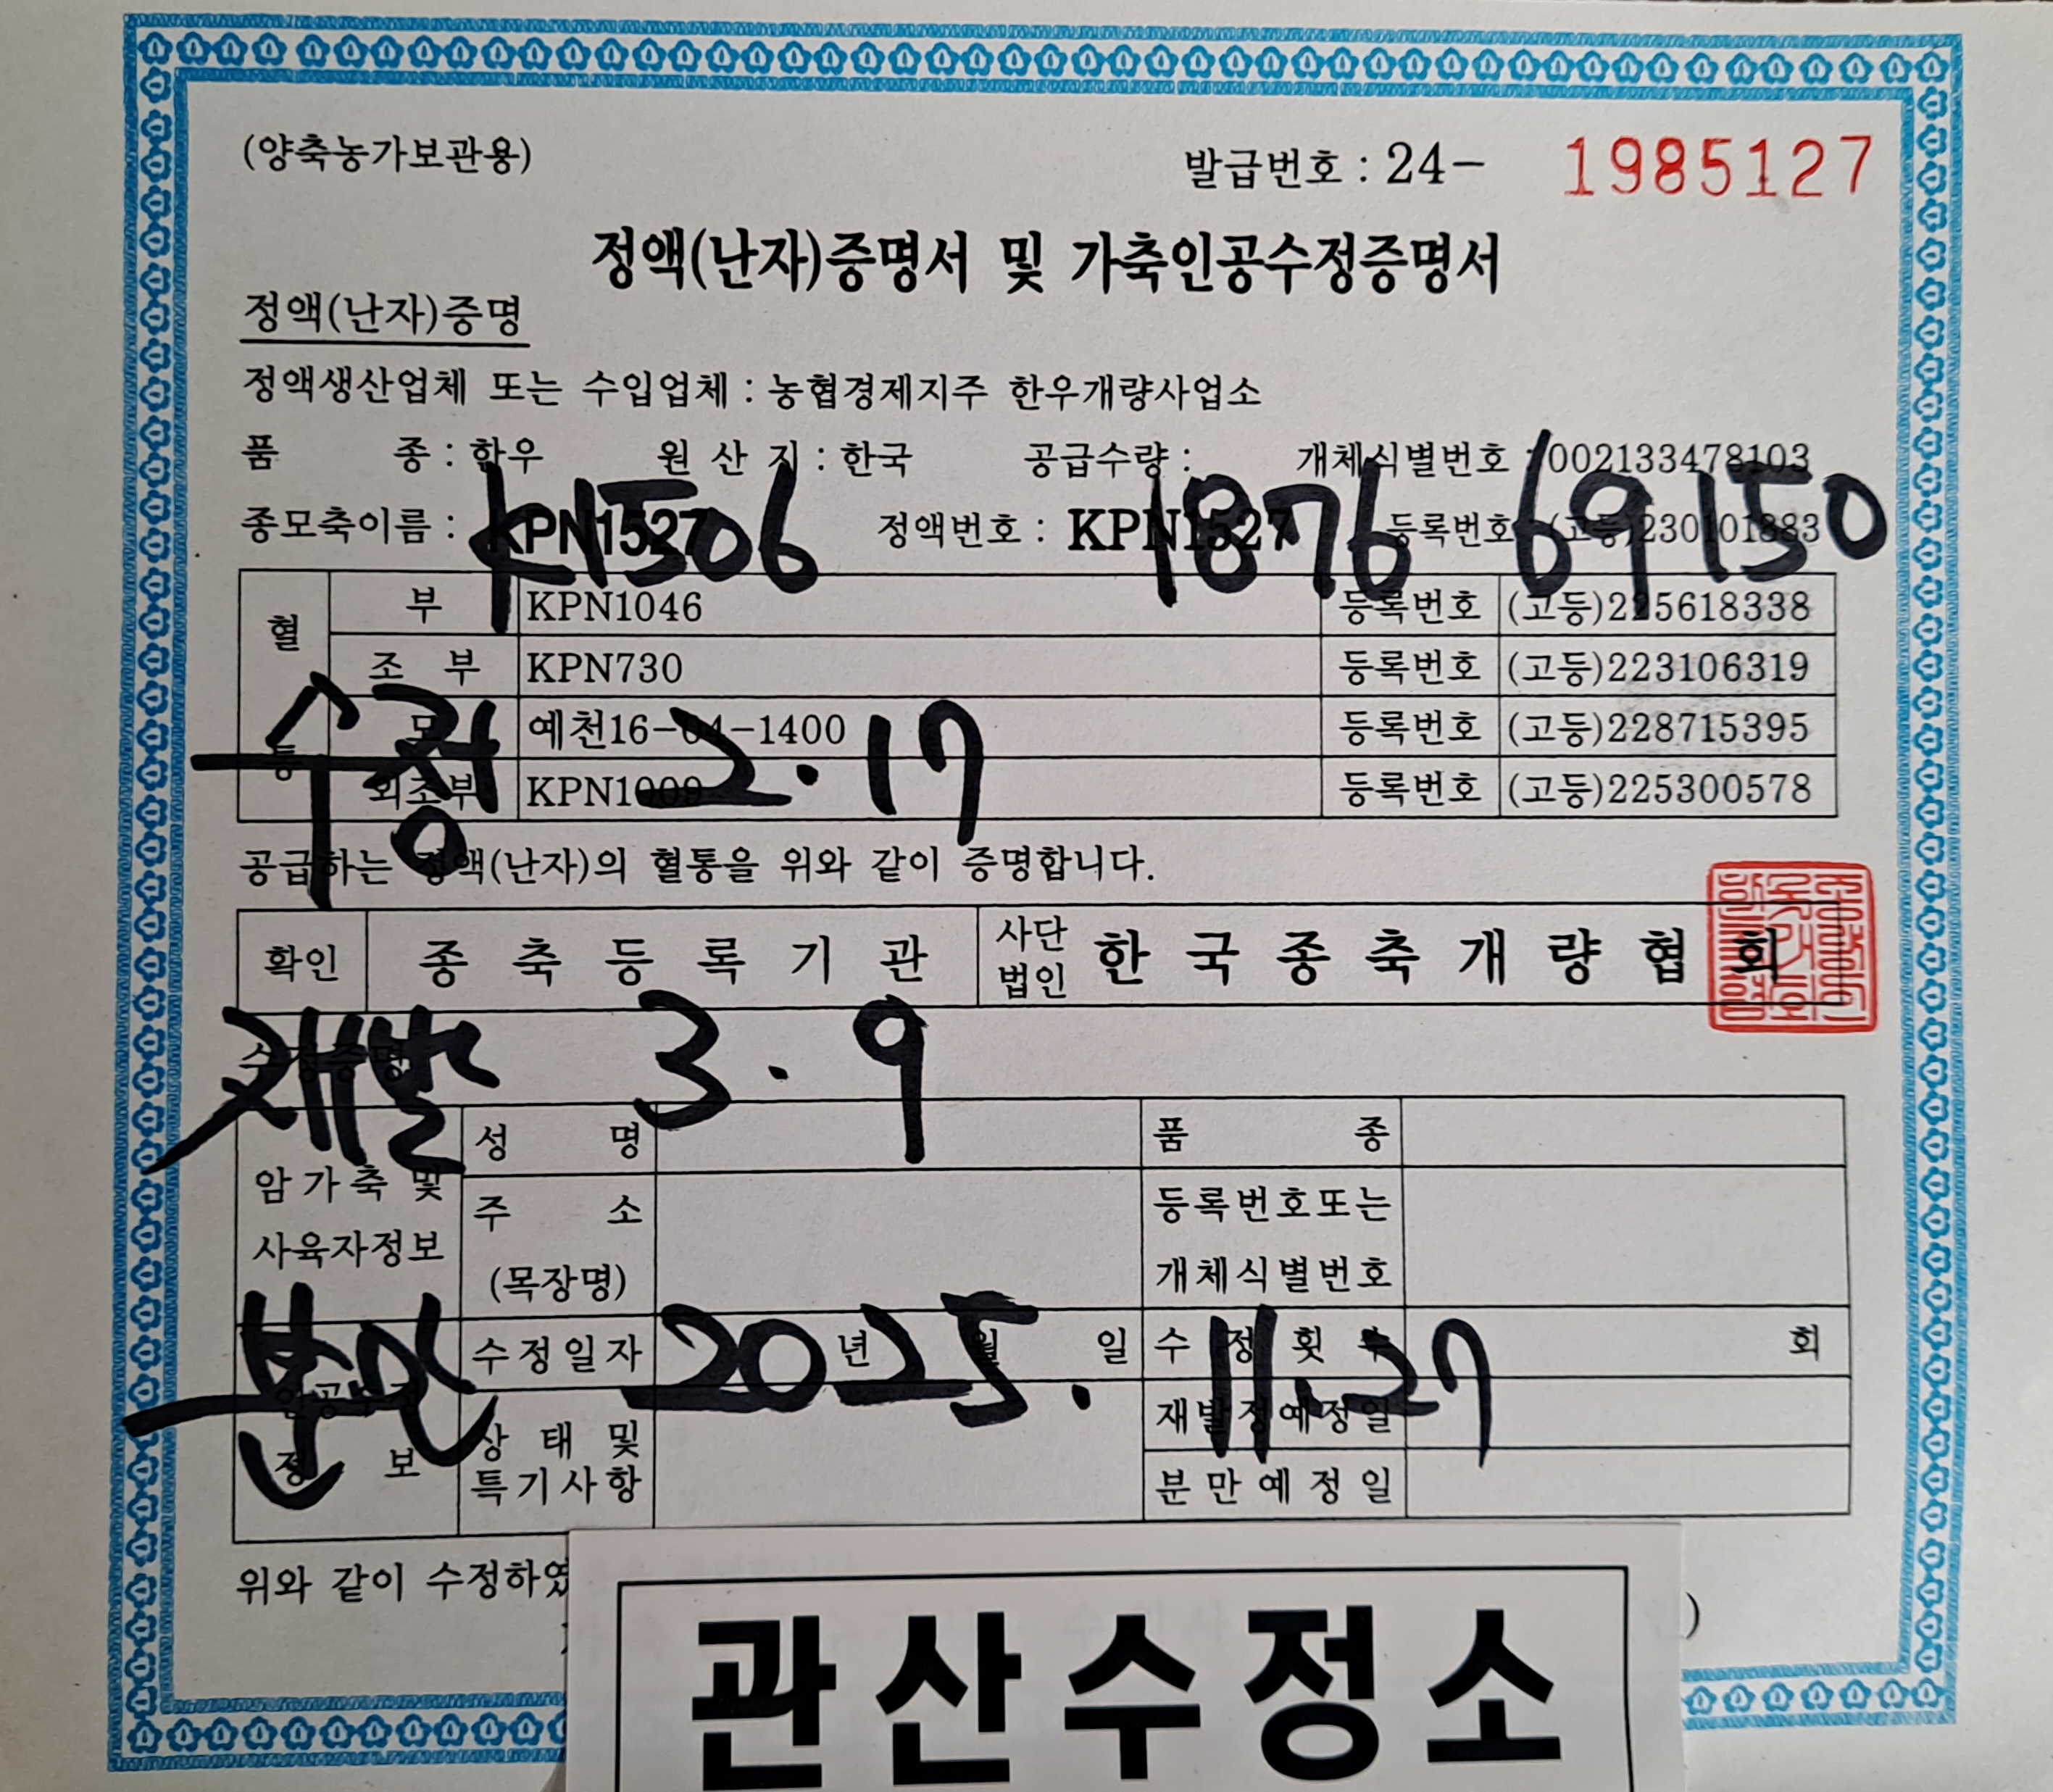 (양축농가보관용)
발급번호 : 24- 1985127
정액(난자)증명서 및 가축인공수정증명서
정액(난자)증명
정액생산업체 또는 수입업체 : 농협경제지주 한우개량사업소
품 종 : 한우 원 산 지 : 한국 공급수량 : 개체식별번호 : 002133478103
K1506 1876 69150
종모축이름 : KPN1527 정액번호 : KPN1527 등록번호 : (고등)230101883
혈통
부 KPN1046 등록번호 (고등)225618338
조 부 KPN730 등록번호 (고등)223106319
모 예천16-04-1400 등록번호 (고등)228715395
수정 2.17
외조부 KPN1009 등록번호 (고등)225300578
공급하는 정액(난자)의 혈통을 위와 같이 증명합니다.
확인 종 축 등 록 기 관 사단법인 한 국 종 축 개 량 협 회
수정증명
재발 3.9
암가축 및 사육자정보
성 명 품 종
주 소 (목장명) 등록번호또는 개체식별번호
분만 2025. 11.27
인공수정 정 보
수정일자 년 월 일 수 정 횟 수 회
상 태 및 특기사항 재발정예정일
분만예정일
위와 같이 수정하였
)
관산수정소